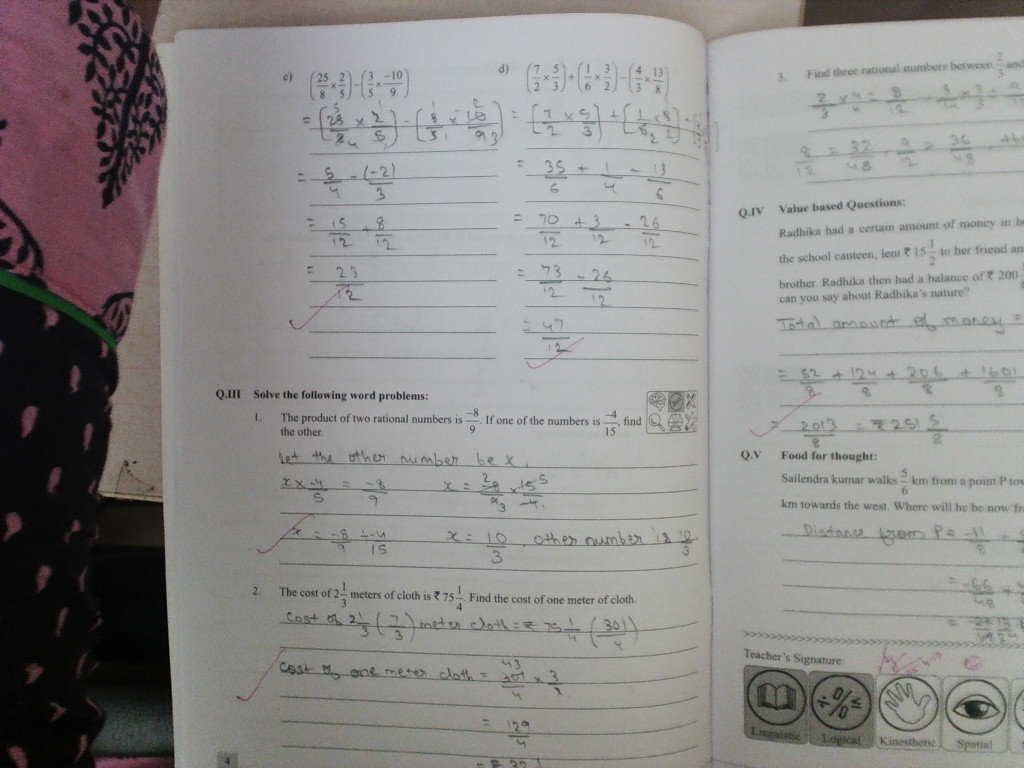 c) (25/8 × 2/5) − (3/5 × −10/9)
= [25/8 × 2/5] − [3/5 × −10/9]
= 5/4 − (−2)/3
= 15/12 + 8/12
= 23/12
d) (7/2 × 5/3) + (1/6 × 3/2) − (4/3 × 13/8)
= [7/2 × 5/3] + [1/6 × 3/2] −
= 35/6 + 1/4 − 13/6
= 70/12 + 3/12 − 26/12
= 73/12 − 26/12
= 47/12
Q.III Solve the following word problems:
1. The product of two rational numbers is −8/9. If one of the numbers is −4/15, find
the other.
Let the other number be x.
x × −4/5 = −8/9 x = −8/9 × 15/−4
x = −8/9 ÷ −4/15 x = 10/3, other number is 10/3
2. The cost of 2 1/3 meters of cloth is ₹ 75 1/4. Find the cost of one meter of cloth.
Cost of 2 1/3 (7/3) meter cloth = ₹ 75 1/4 (301/4)
Cost of one meter cloth = 301/4 × 3/7
= 129/4
4
3. Find three rational numbers between 2/3 and
2/3 × 4/4 = 8/12 3/4 × 3/3 = 9
8/12 = 32/48 , 9/12 = 36/48
Q.IV Value based Questions:
Radhika had a certain amount of money in
the school canteen, lent ₹ 15 1/2 to her friend an
brother. Radhika then had a balance of ₹ 200
can you say about Radhika's nature?
Total amount of money =
= 82/8 + 124/8 + 206/8 + 1601/8
= 2013/8 = ₹ 251 5/8
Q.V Food for thought:
Sailendra kumar walks 5/6 km from a point P tow
km towards the west. Where will he be now fr
Distance from P = −11/8 +
= −66/48 +
Teacher's Signature:
Linguistic Logical Kinesthetic Spatial